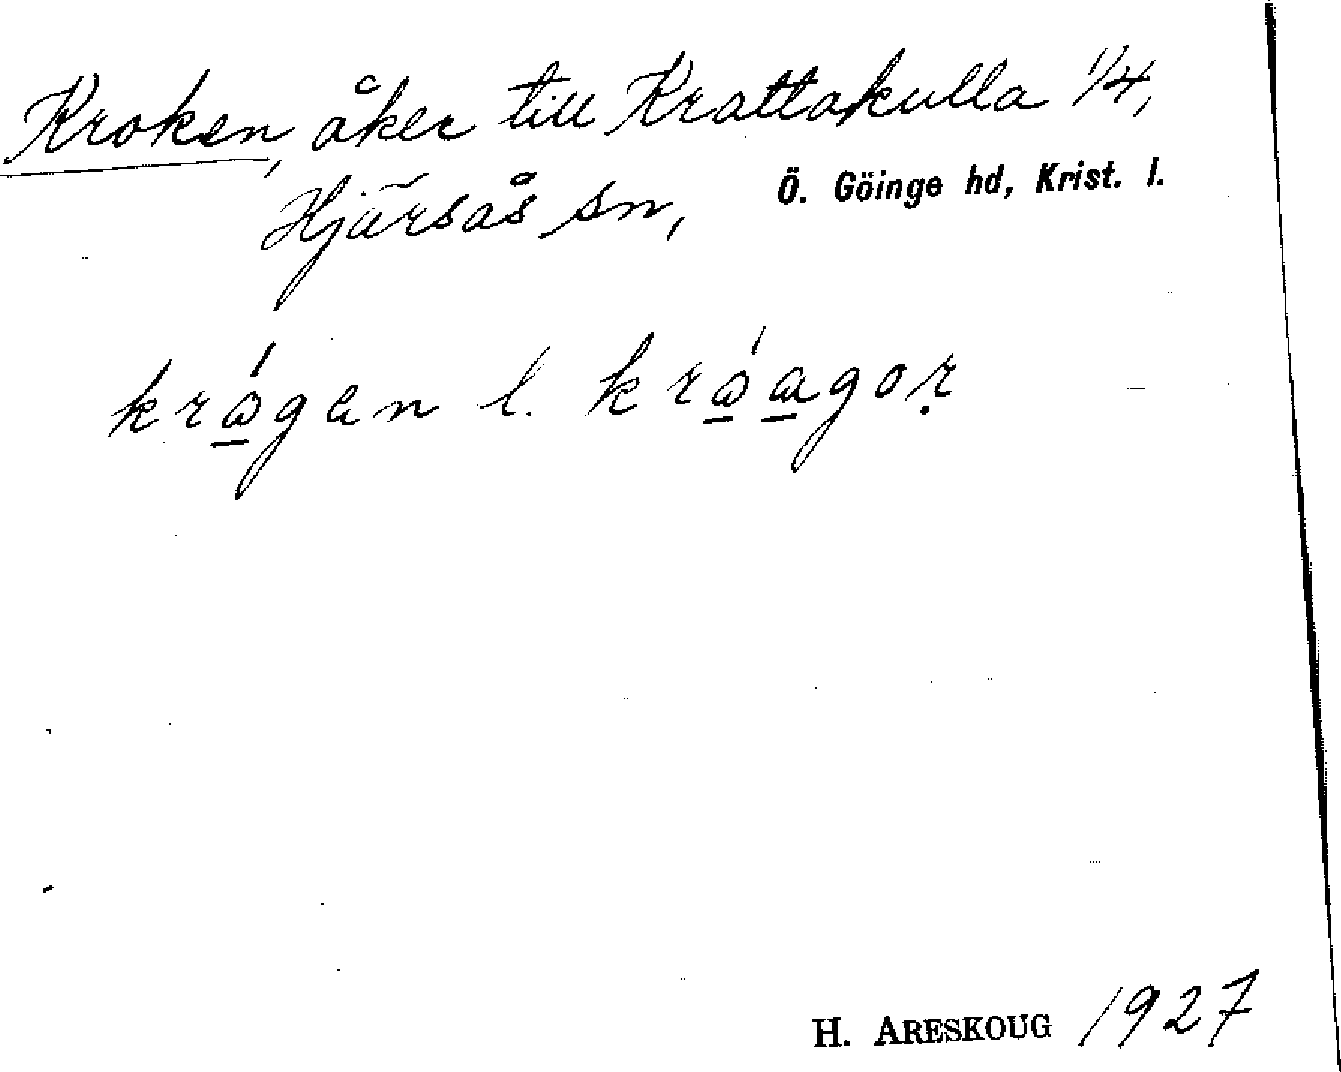 Kroken, åker till Krattakulla 1/4,
Hjärsås sn, Ö. Göinge hd, Krist. l.
krǻgen l.
H. ARESKOUG 1927